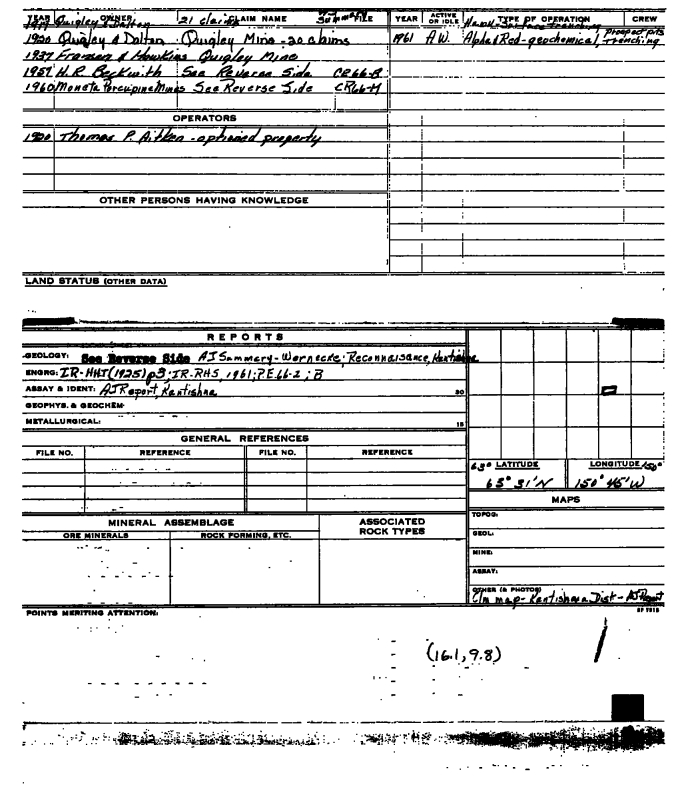 YEAR OWNER CLAIM NAME FILE YEAR ACTIVE OR IDLE TYPE OF OPERATION CREW
Quigley & Dalton 21 claims Summary Hand, Surface trenching
1920 Quigley & Dalton . Quigley Mine - 20 claims 1961 A.W. Alpha & Red - geochemical, prospect pits trenching
1937 Franson & Hawkins Quigley Mine
1957 H.R. Beckwith See Reverse Side CR66-B
1960 Moneta Porcupine Mines See Reverse Side CR66-M
OPERATORS
1920 Thomas P. Aitken - optioned property
OTHER PERSONS HAVING KNOWLEDGE
LAND STATUS (OTHER DATA)
REPORTS
GEOLOGY: See Reverse Side AJ Summary - Wernecke; Reconnaisance, Kantishna
ENGRG: IR-HHI (1925) p3; IR-RHS, 1961; P.E. 66-2; B
ASSAY & IDENT: AJ Report Kantishna 30
GEOPHYS. & GEOCHEM.
METALLURGICAL: 15
GENERAL REFERENCES
FILE NO. REFERENCE FILE NO. REFERENCE
63° LATITUDE LONGITUDE 150°
63° 31' N 150° 45' W
MAPS
TOPOG:
GEOL:
MINE:
ASSAY:
OTHER (& PHOTOS)
Clm map - Kantishna Dist - AJ Report
MINERAL ASSEMBLAGE ASSOCIATED ROCK TYPES
ORE MINERALS ROCK FORMING, ETC.
POINTS MERITING ATTENTION:
(16.1, 9.8)